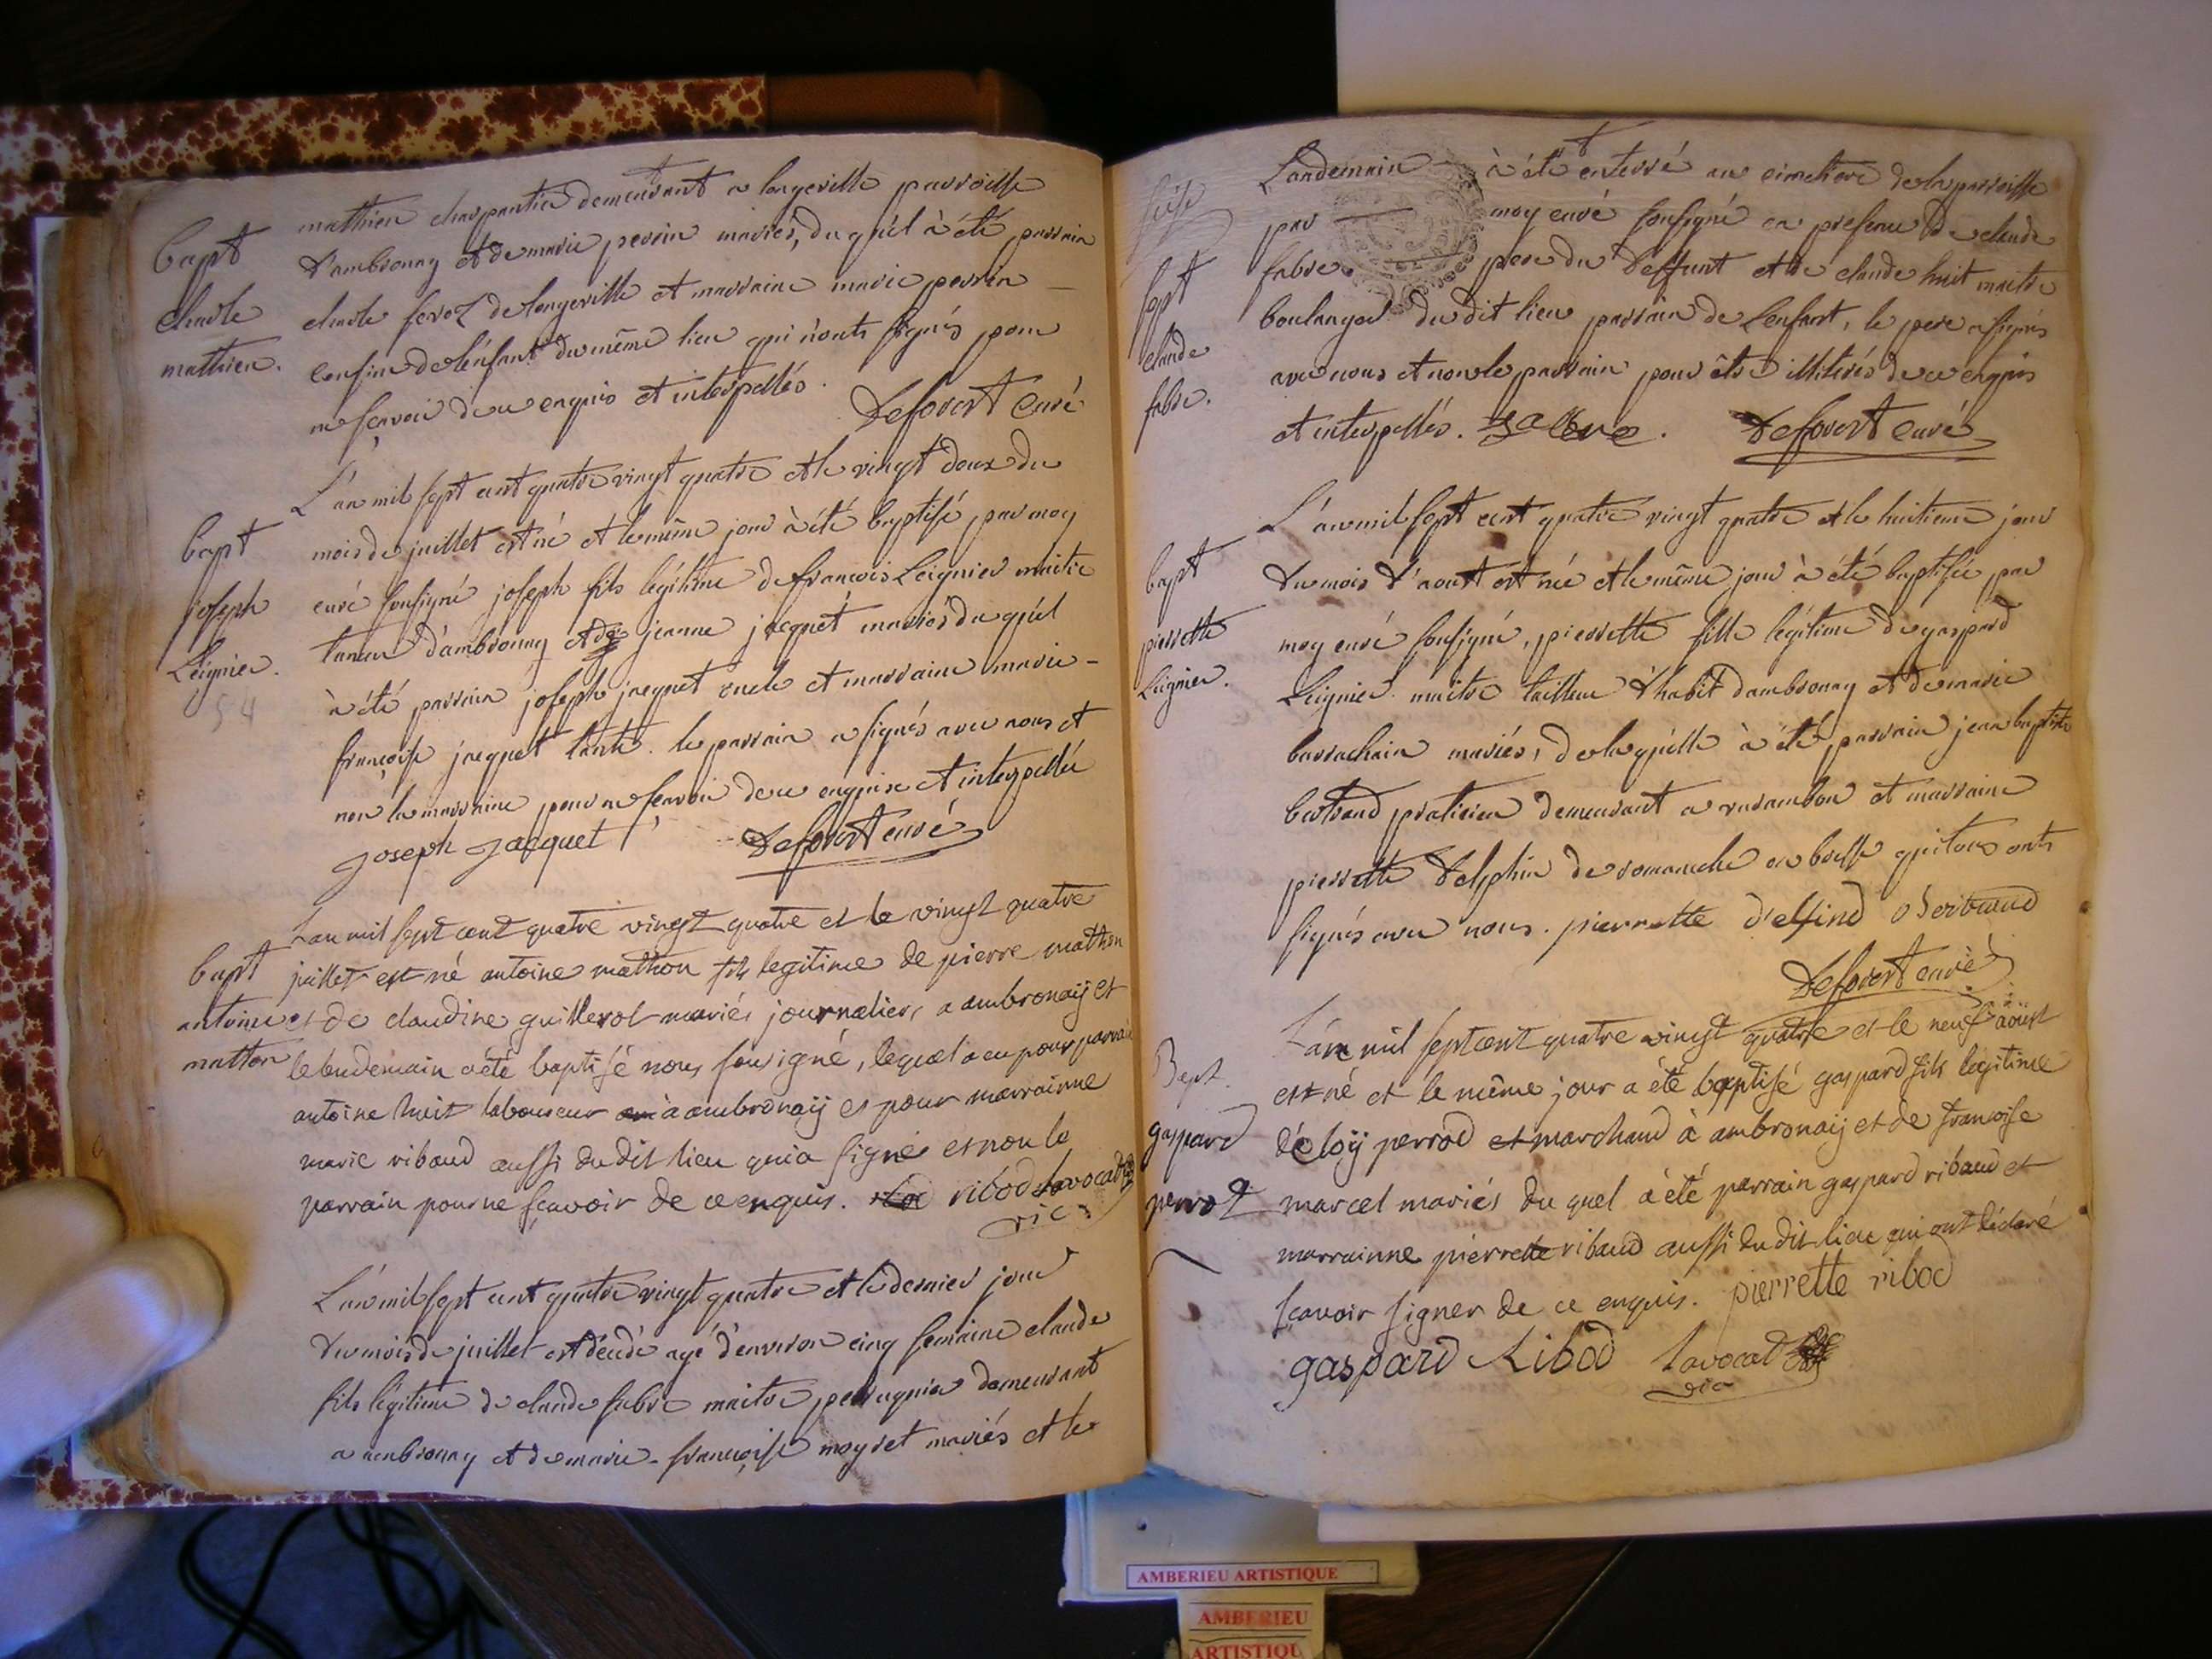 mathieu charpantier demeurant a longeville parroisse
d'ambronay et de marie perrin mariés, du quel à été parrain
charle feroz de longeville et marraine marie perrin
cousine de l'enfant du même lieu qui n'onts signés pour
ne sçavoir de ce enquis et interpellés. Defovert curé
bapt
charle
mathieu.
L'an mil sept cent quatre vingt quatre et le vingt deux du
mois de juillet est né et le même jour à été baptisé par moy
curé sousigné joseph fils légitime de francois Leignier maitre
taneur d'ambronay et de jeanne jacquet mariés du quel
à été parrain joseph jacquet oncle et marraine marie
françoise jacquet tante. le parrain a signés avec nous et
non la marraine pour ne sçavoir de ce enquise et interpellée
joseph jacquet Defovert curé
bapt
joseph
Leignier.
54
L'an mil sept cent quatre vingt quatre et le vingt quatre
juillet est né antoine mathon fils legitime de pierre mathon
et de claudine guillerot mariés journaliers a ambronaÿ et
le lendemain a été baptisé nous sousigné, lequel a eu pour parrain
antoine huit laboureur à ambronaÿ et pour marrainne
marie ribaud aussi du dit lieu qui a signé et non le
parrain pour ne sçavoir de ce enquis. ribod Lavocat
vic
bapt
antoine
mathon
L'an mil sept cent quatre vingt quatre et le dernier jour
du mois de juillet est décédé agé d'environ cinq semaine claude
fils légitime de claude fabre maitre perruquier demeurant
a ambronay et de marie françoise moyret mariés et le
Landemain à été enterré au cimetiere de la parroisse
par moy curé sousigné en presence de claude
fabre pere du deffunt et de claude huit maitre
boulanger du dit lieu parrain de Lenfant, le pere a signés
avec nous et non le parrain pour être illiterés de ce enquis
et interpellés. Fabre. Defovert curé
sept
claude
fabre.
L'an mil sept cent quatre vingt quatre et le huitieme jour
du mois d'aout est née et le même jour à été baptisée par
moy curé sousigné, pierrette fille legitime de gaspard
Leignier maitre tailleur d'habit d'ambronay et de marie
barrachain mariés, de la quelle à été parrain jean baptiste
bertrand praticien demeurant a varambon et marraine
pierrette delphin de romaneche en bresse qui tous onts
signés avec nous. pierrette d'elfind Bertrand
Defovert curé
bapt
pierrette
Leignier.
L'an mil sept cent quatre vingt quatre et le neuf aoust
est né et le même jour a été baptisé gaspard fils legitime
d'éloÿ perrod et marchand à ambronaÿ et de francoise
marcel mariés du quel a été parrain gaspard ribaud et
marrainne pierrette ribaud aussi du dit lieu qui ont déclaré
sçavoir signer de ce enquis. pierrette ribod
gaspard Ribod Lavocat
vic
Bapt.
gaspard
perrot
AMBERIEU ARTISTIQUE
AMBERIEU
ARTISTIQU